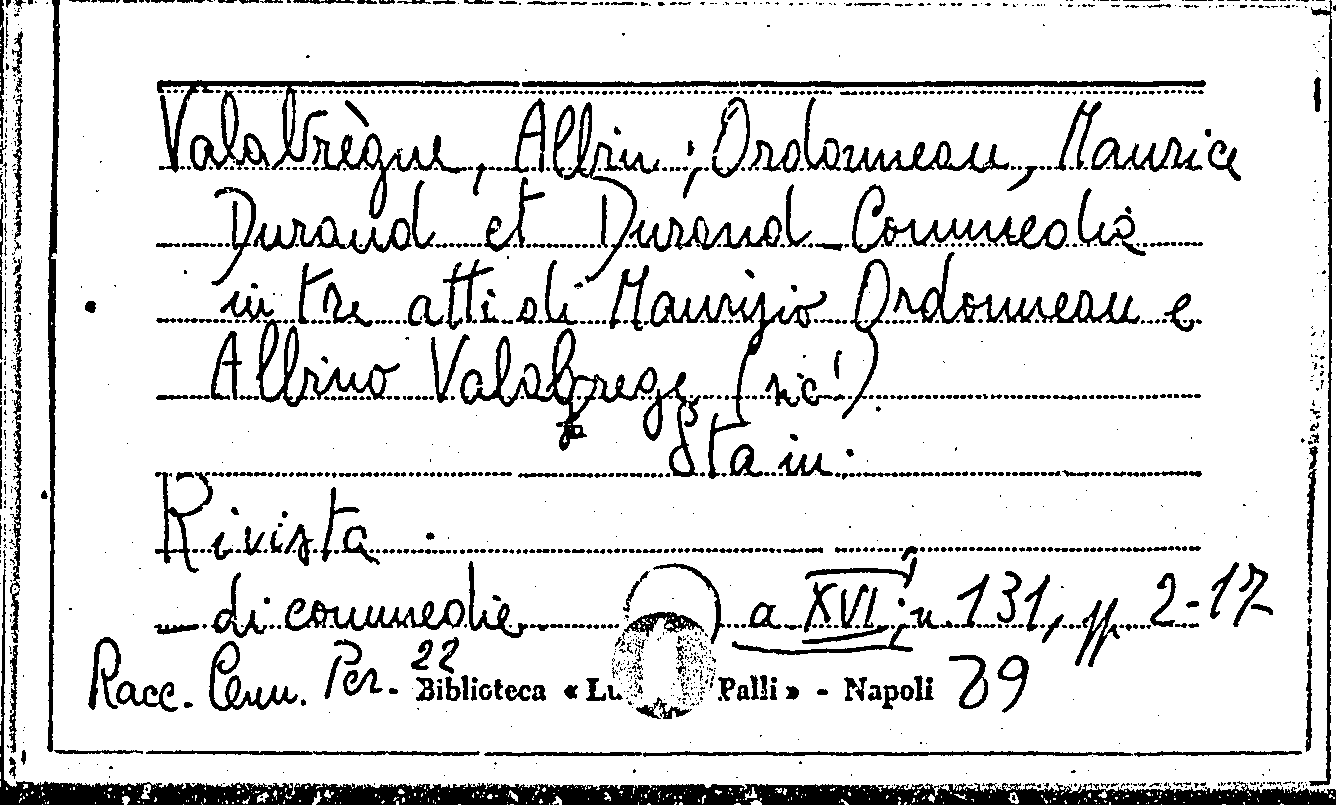 Valabrègue, Albin ; Ordonneau, Maurice
Durand et Durand Commedia
in tre atti di Maurizio Ordonneau e
Albino Valabrege (sic!).
Sta in:
Rivista
di commedie. a XVI, n. 131, pp. 2-17
Racc. Cenn. Per. 22 Biblioteca « Lu Palli » - Napoli 39